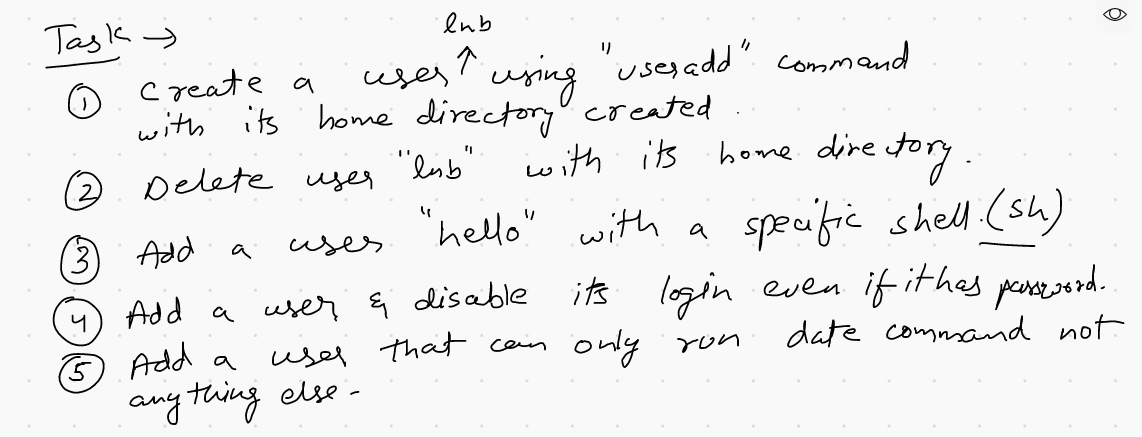 Task →
lnb
① Create a user ↑ using "useradd" command
with its home directory created.
② Delete user "lnb" with its home directory.
③ Add a user "hello" with a specific shell.(sh)
④ Add a user & disable its login even if it has password.
⑤ Add a user that can only run date command not
anything else-